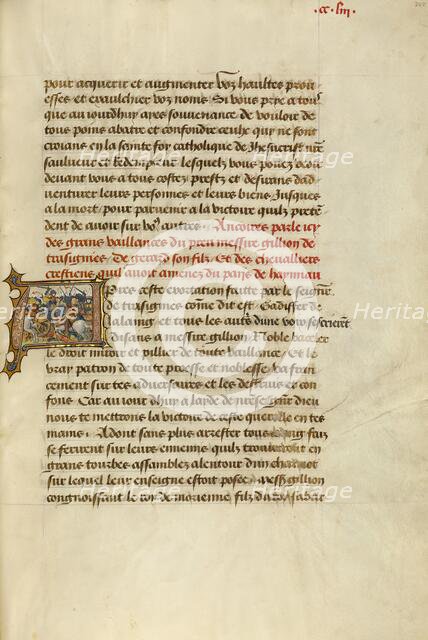 ·cc·liii·
pour acquerir et augmenter voz haultes prou
esses et exaulchier voz noms Si vous prye a tous
que au iourdhuy ayes souvenance de vouloir de
tous poins abatre et confondre ceulx qui ne sont
croians en la sainte foy catholique de Jhesucrist nre
saulveur et Redempteur lesquelz vous pouez veoir
devant vous a tous costez prestz et desirans dad
venturer leurs personnes et leurs biens Jusques
a la mort pour parvenir a la victoire quilz preten
dent de avoir sur vous autres Ancoires parle icy
des grans vaillances du preu messire gillion de
trasignies De gerard son filz Et des chevalliers
crestiens quil avoit amenez du pais de haynnau
Apres ceste exortation faitte par le seignr
de trasignies come dit est Gadiffer de
lalaing et tous les autres dune voix sescrierent
Disans a messire gillion Noble
le droit miroir et pillier de toute vaillance Et le
vray patron de toute proesse et noblesse
cement sur tes adversaires et les
fons Car au iourdhuy a layde de nre seignr dieu
nous te mettrons la victoire de ceste querelle en tes
mains Adont sans plus arrester tous
se ferirent sur leurs ennemis quilz trouverent en
grans tourbes assemblez alentour dun chariot
sur lequel leur enseigne estoit posee messire gillion
congnoissant le roy de morienne filz
Heritage Images
Heritage Images
Heritage Images
Heritage Images
Heritage Images